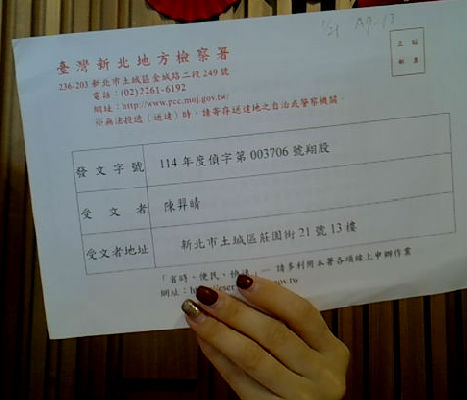 臺灣新北地方檢察署
236-203 新北市土城區金城路二段 249 號
電話:(02)2261-6192
網址:http://www.pcc.moj.gov.tw/
※無法投遞(送達)時,請寄存送達地之自治或警察機關。
發文字號 114 年度偵字第 003706 號翔股
受文者 陳羿晴
受文者地址 新北市土城區莊園街 21 號 13 樓
「省時、便民、快速」— 請多利用本署各項線上申辦作業
網址: